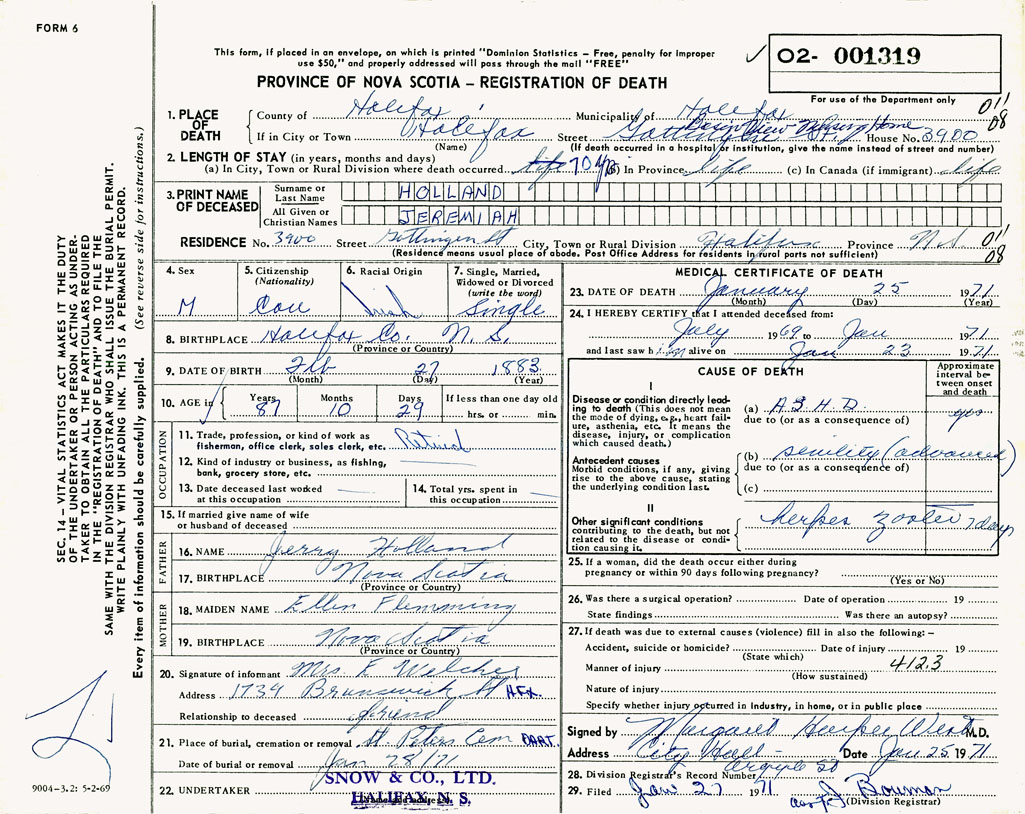 FORM 6
This form, if placed in an envelope, on which is printed "Dominion Statistics – Free, penalty for improper
use $50," and properly addressed will pass through the mail "FREE"
PROVINCE OF NOVA SCOTIA – REGISTRATION OF DEATH
✓ 02- 001319
For use of the Department only
011
08
1. PLACE OF DEATH
County of Halifax Municipality of Halifax
Basin View Nursing Home
If in City or Town Halifax Street Gottingen St. House No. 3900
(Name) (If death occurred in a hospital or institution, give the name instead of street and number)
2. LENGTH OF STAY (in years, months and days)
(a) In City, Town or Rural Division where death occurred life 70 yrs (b) In Province life (c) In Canada (if immigrant) life
3. PRINT NAME OF DECEASED
Surname or Last Name HOLLAND
All Given or Christian Names JEREMIAH
RESIDENCE No. 3900 Street Gottingen St City, Town or Rural Division Halifax Province N.S. 011
08
(Residence means usual place of abode. Post Office Address for residents in rural parts not sufficient)
4. Sex
M
5. Citizenship
(Nationality)
Can
6. Racial Origin
Irish
7. Single, Married,
Widowed or Divorced
(write the word)
Single
8. BIRTHPLACE Halifax Co. N.S.
(Province or Country)
9. DATE OF BIRTH Feb 27 1883
(Month) (Day) (Year)
10. AGE
Years Months Days If less than one day old
87 10 29 hrs. or min.
OCCUPATION
11. Trade, profession, or kind of work as
fisherman, office clerk, sales clerk, etc. Retired
12. Kind of industry or business, as fishing,
bank, grocery store, etc.
13. Date deceased last worked
at this occupation
14. Total yrs. spent in
this occupation
15. If married give name of wife
or husband of deceased
FATHER
16. NAME Jerry Holland
17. BIRTHPLACE Nova Scotia
(Province or Country)
MOTHER
18. MAIDEN NAME Ellen Flemming
19. BIRTHPLACE Nova Scotia
(Province or Country)
20. Signature of informant Mrs F Welcher
Address 1739 Brunswick St HFX.
Relationship to deceased friend
21. Place of burial, cremation or removal St Peters Cem DART.
Date of burial or removal Jan 28/71
22. UNDERTAKER SNOW & CO., LTD.
HALIFAX, N. S.
MEDICAL CERTIFICATE OF DEATH
23. DATE OF DEATH January 25 1971
(Month) (Day) (Year)
24. I HEREBY CERTIFY that I attended deceased from:
July 1969 to Jan 1971
and last saw him alive on Jan 23 1971
CAUSE OF DEATH
Approximate
interval be-
tween onset
and death
I
Disease or condition directly lead-
ing to death (This does not mean
the mode of dying, e.g., heart fail-
ure, asthenia, etc. It means the
disease, injury, or complication
which caused death.)
(a) A.S.H.D. yrs
due to (or as a consequence of)
Antecedent causes
Morbid conditions, if any, giving
rise to the above cause, stating
the underlying condition last.
(b) senility (advanced)
due to (or as a consequence of)
(c)
II
Other significant conditions
contributing to the death, but not
related to the disease or condi-
tion causing it.
herpes zoster 7 days
25. If a woman, did the death occur either during
pregnancy or within 90 days following pregnancy?
(Yes or No)
26. Was there a surgical operation? Date of operation 19
State findings Was there an autopsy?
27. If death was due to external causes (violence) fill in also the following: –
Accident, suicide or homicide? Date of injury 19
(State which)
Manner of injury 412.3
(How sustained)
Nature of injury
Specify whether injury occurred in industry, in home, or in public place
Signed by Margaret M.D.
Address City Hall – Date Jan 25 1971
Argyle St
28. Division Registrar's Record Number
29. Filed Jan 27 1971 J Bowman
(Division Registrar)
SEC. 14 – VITAL STATISTICS ACT MAKES IT THE DUTY
OF THE UNDERTAKER OR PERSON ACTING AS UNDER-
TAKER TO OBTAIN ALL THE PARTICULARS REQUIRED
IN THE "REGISTRATION OF DEATH" AND TO FILE THE
SAME WITH THE DIVISION REGISTRAR WHO SHALL ISSUE THE BURIAL PERMIT.
WRITE PLAINLY WITH UNFADING INK. THIS IS A PERMANENT RECORD.
Every item of information should be carefully supplied. (See reverse side for instructions.)
9004-3.2: 5-2-69